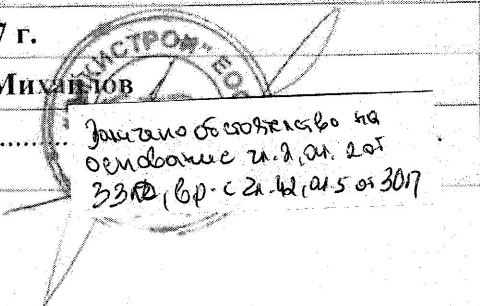 7 г.
Михайлов
"МАКИСТРОЙ" ЕОО
Заличено обстоятелство на
основание чл.2, ал. 2 от
ЗЗЛД, вр. с чл.42, ал.5 от ЗОП